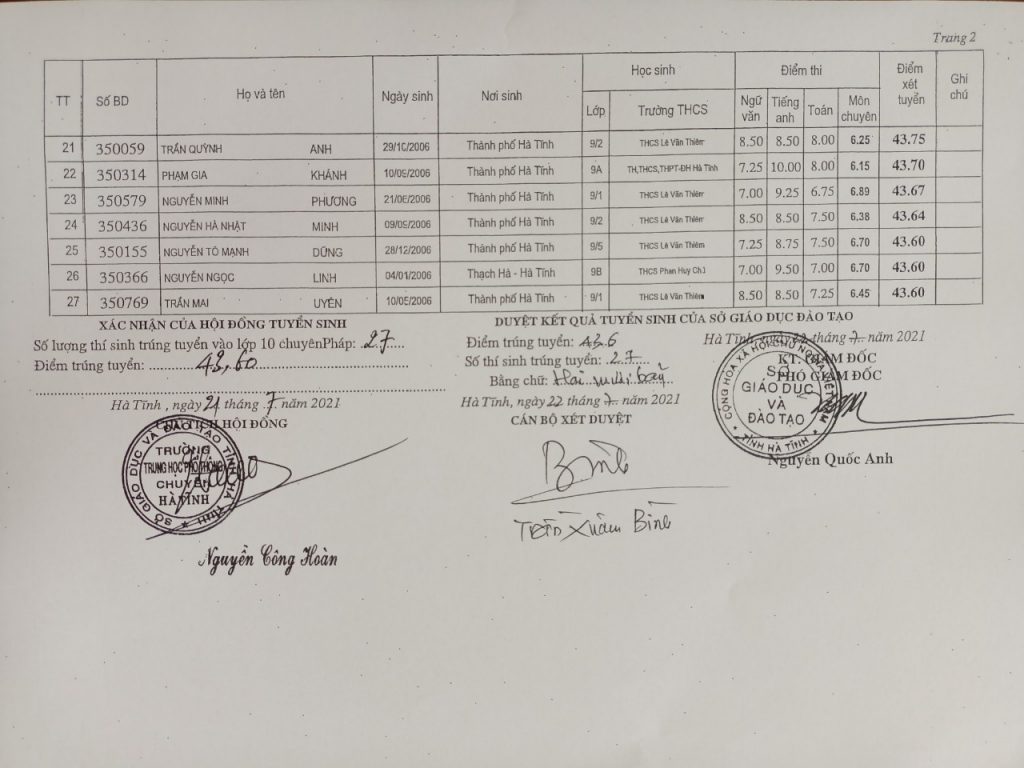 Trang 2
TT Số BD Họ và tên Ngày sinh Nơi sinh Học sinh Điểm thi Điểm xét tuyển Ghi chú
Lớp Trường THCS Ngữ văn Tiếng anh Toán Môn chuyên
21 350059 TRẦN QUỲNH ANH 29/10/2006 Thành phố Hà Tĩnh 9/2 THCS Lê Văn Thiêm 8.50 8.50 8.00 6.25 43.75
22 350314 PHẠM GIA KHÁNH 10/09/2006 Thành phố Hà Tĩnh 9A TH,THCS,THPT-ĐH Hà Tĩnh 7.25 10.00 8.00 6.15 43.70
23 350579 NGUYỄN MINH PHƯƠNG 21/06/2006 Thành phố Hà Tĩnh 9/1 THCS Lê Văn Thiêm 7.00 9.25 6.75 6.89 43.67
24 350436 NGUYỄN HÀ NHẬT MINH 09/09/2006 Thành phố Hà Tĩnh 9/2 THCS Lê Văn Thiêm 8.50 8.50 7.50 6.38 43.64
25 350155 NGUYỄN TÔ MẠNH DŨNG 28/12/2006 Thành phố Hà Tĩnh 9/5 THCS Lê Văn Thiêm 7.25 8.75 7.50 6.70 43.60
26 350366 NGUYỄN NGỌC LINH 04/01/2006 Thạch Hà - Hà Tĩnh 9B THCS Phan Huy Chú 7.00 9.50 7.00 6.70 43.60
27 350769 TRẦN MAI UYÊN 10/05/2006 Thành phố Hà Tĩnh 9/1 THCS Lê Văn Thiêm 8.50 8.50 7.25 6.45 43.60
XÁC NHẬN CỦA HỘI ĐỒNG TUYỂN SINH
Số lượng thí sinh trúng tuyển vào lớp 10 chuyênPháp: 27
Điểm trúng tuyển: 43,60
Hà Tĩnh , ngày 21 tháng 7 năm 2021
CHỦ TỊCH HỘI ĐỒNG
SỞ GIÁO DỤC VÀ ĐÀO TẠO TỈNH HÀ TĨNH
TRƯỜNG
TRUNG HỌC PHỔ THÔNG
CHUYÊN
HÀ TĨNH
Nguyễn Công Hoàn
DUYỆT KẾT QUẢ TUYỂN SINH CỦA SỞ GIÁO DỤC ĐÀO TẠO
Điểm trúng tuyển: 43.6
Số thí sinh trúng tuyển: 27
Bằng chữ: Hai mươi bảy
Hà Tĩnh, ngày 22 tháng 7 năm 2021
CÁN BỘ XÉT DUYỆT
Trần Xuân Bình
Hà Tĩnh, ngày 22 tháng 7 năm 2021
KT. GIÁM ĐỐC
PHÓ GIÁM ĐỐC
CỘNG HÒA XÃ HỘI CHỦ NGHĨA VIỆT NAM
SỞ
GIÁO DỤC
VÀ
ĐÀO TẠO
TỈNH HÀ TĨNH
Nguyễn Quốc Anh